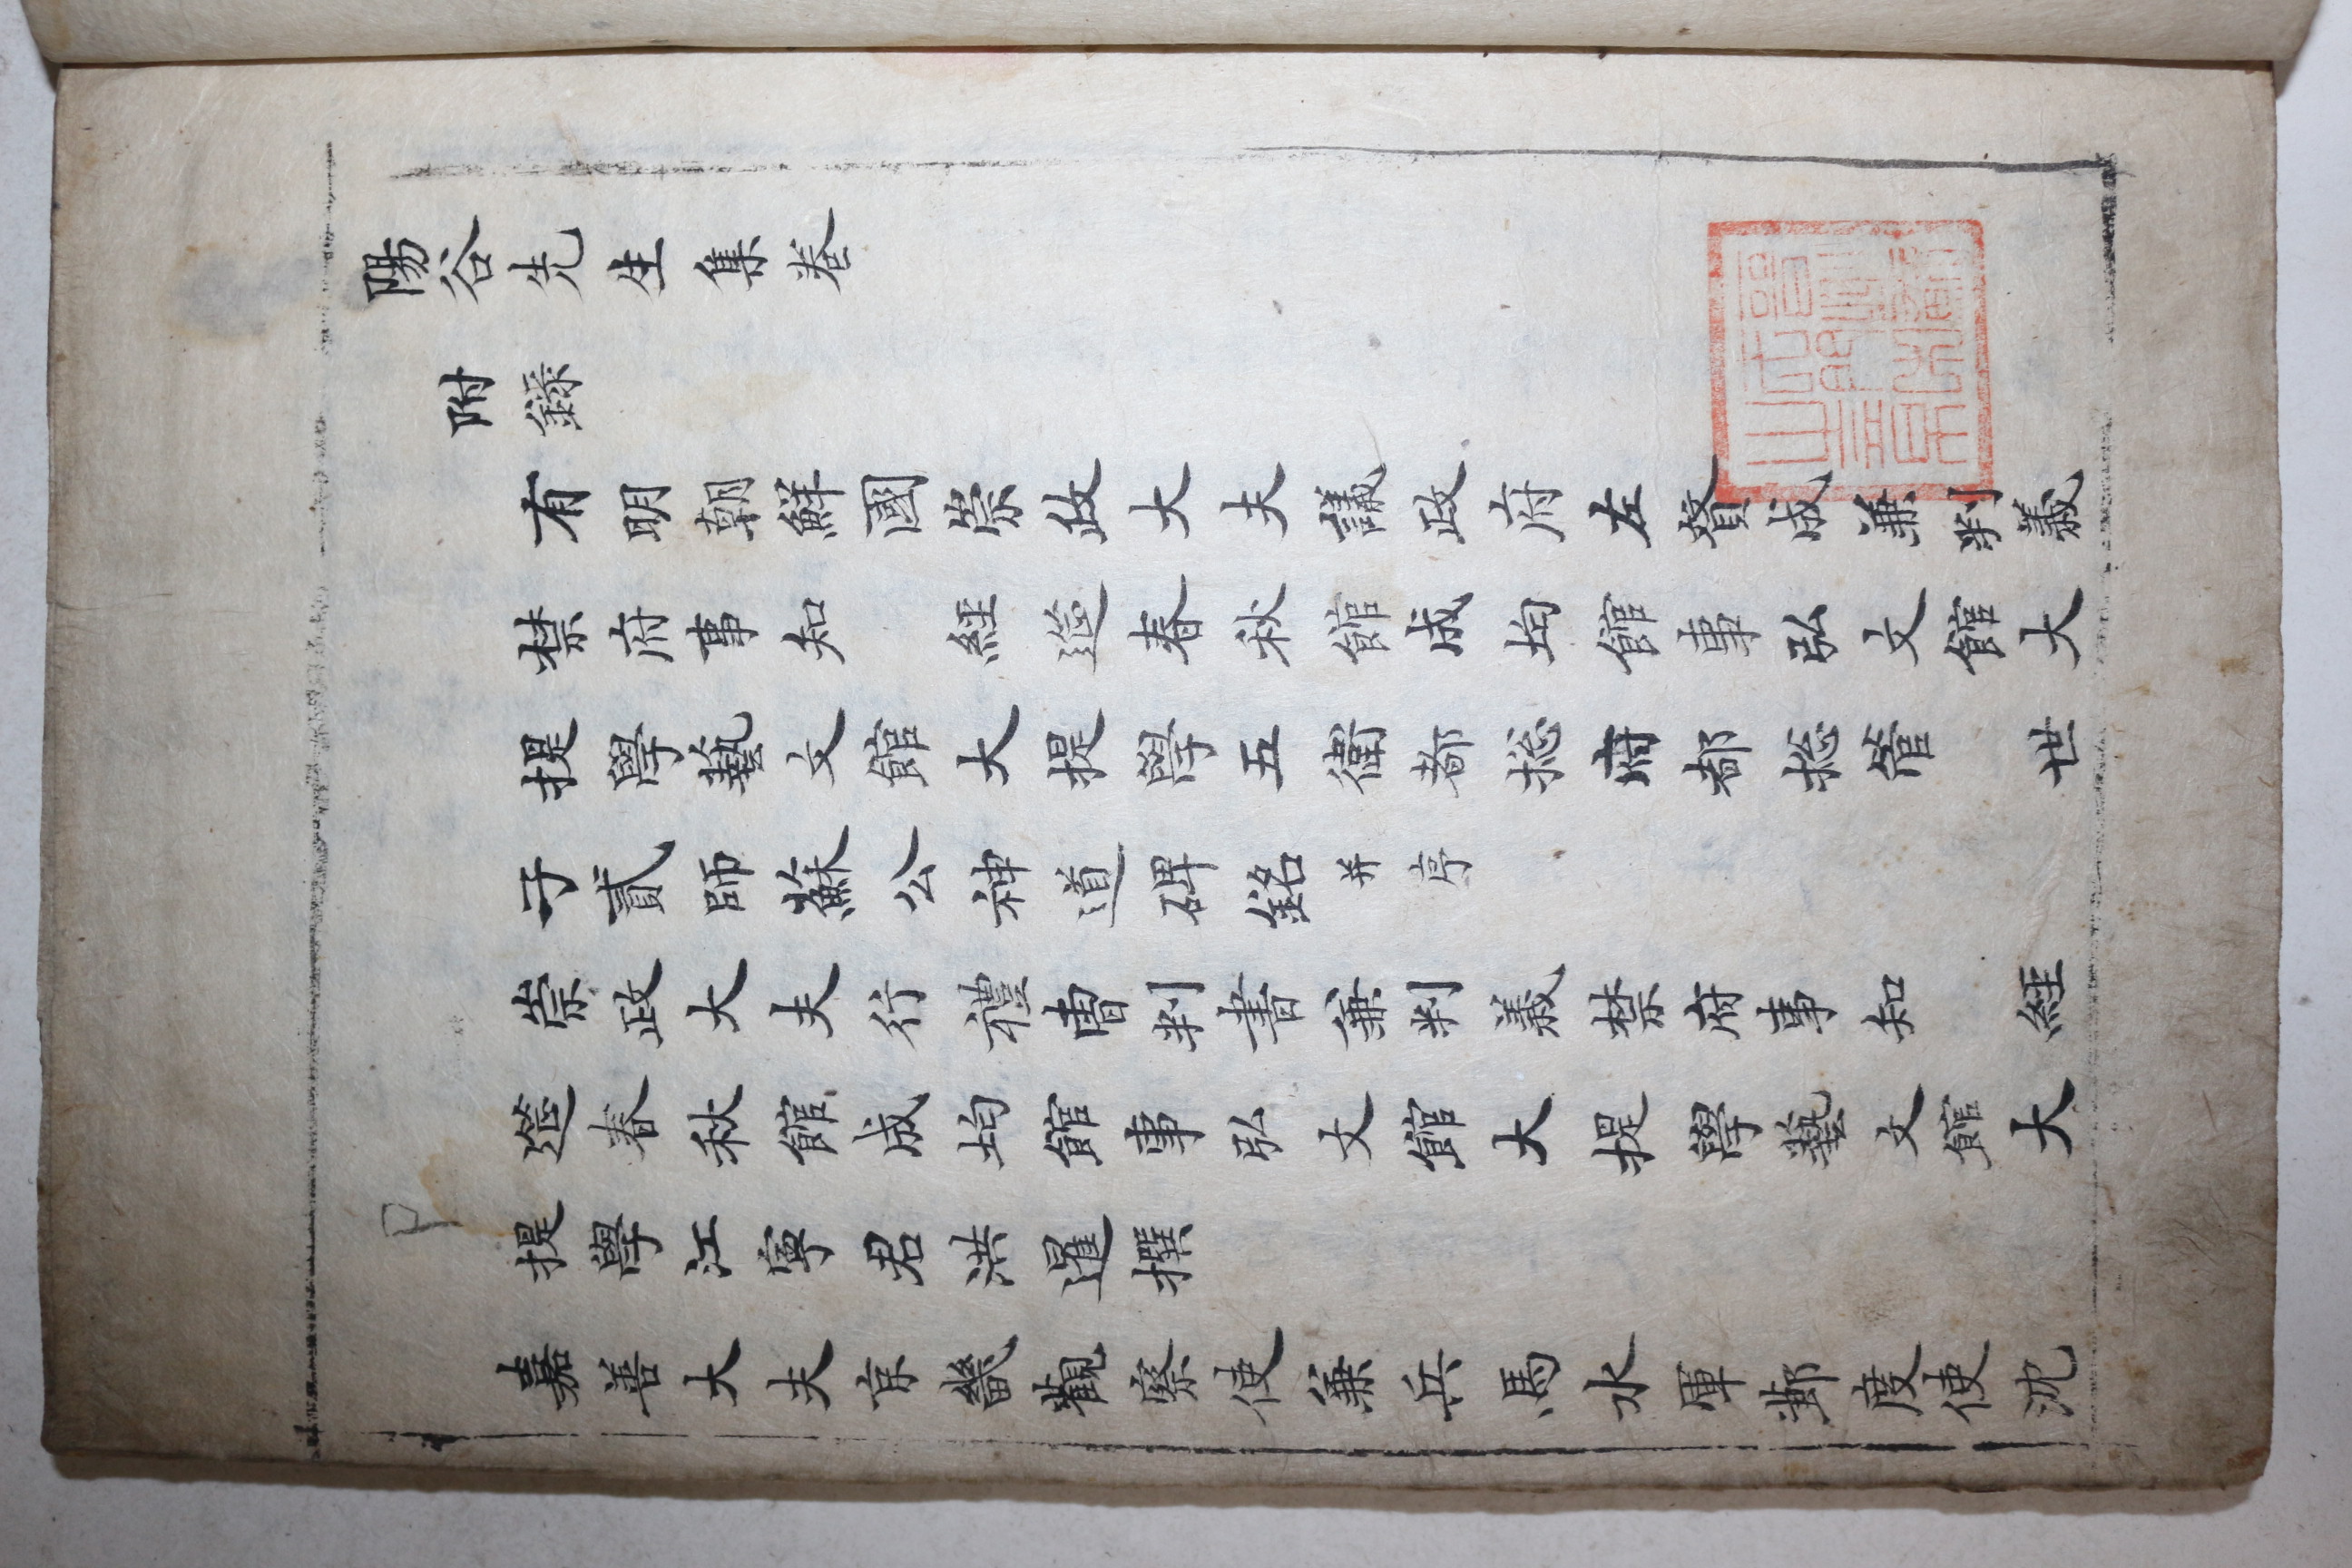 陽谷先生集卷
附錄
有明朝鮮國崇政大夫議政府左贊成兼判義
禁府事知 經筵春秋館成均館事弘文館大
提學藝文館大提學五衛都摠府都摠管 世
子貳師蘇公神道碑銘 并序
崇政大夫行禮曹判書兼判義禁府事知 經
筵春秋館成均館事弘文館大提學藝文館大
提學江寧君洪暹撰
嘉善大夫京畿觀察使兼兵馬水軍節度使沈